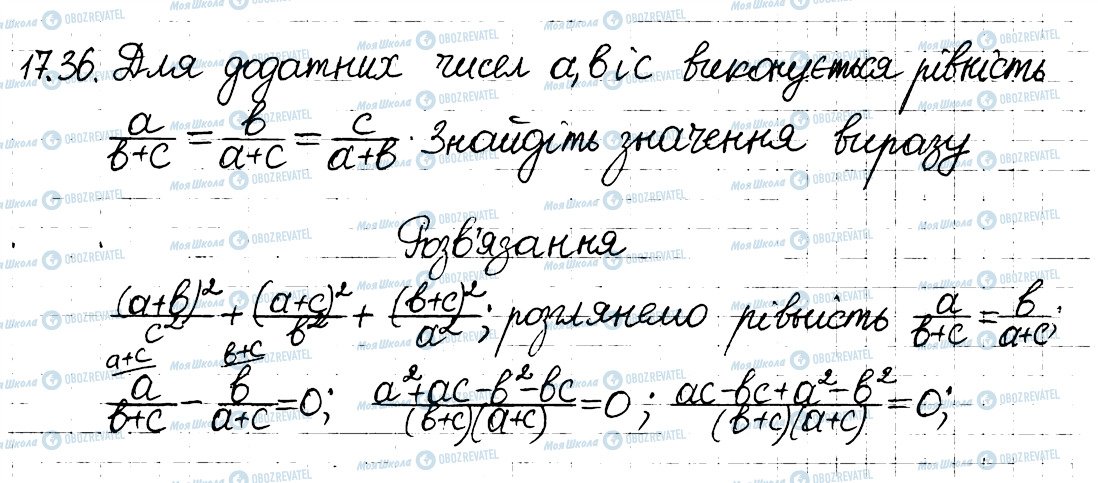 17.36. Для додатних чисел a, b і c виконується рівність
a/(b+c) = b/(a+c) = c/(a+b). Знайдіть значення виразу
Розв'язання
(a+b)²/c² + (a+c)²/b² + (b+c)²/a²; розглянемо рівність a/(b+c) = b/(a+c);
a+c b+c
a/(b+c) - b/(a+c) = 0; (a²+ac-b²-bc)/((b+c)(a+c)) = 0; (ac-bc+a²-b²)/((b+c)(a+c)) = 0;
Моя Школа OBOZREVATEL